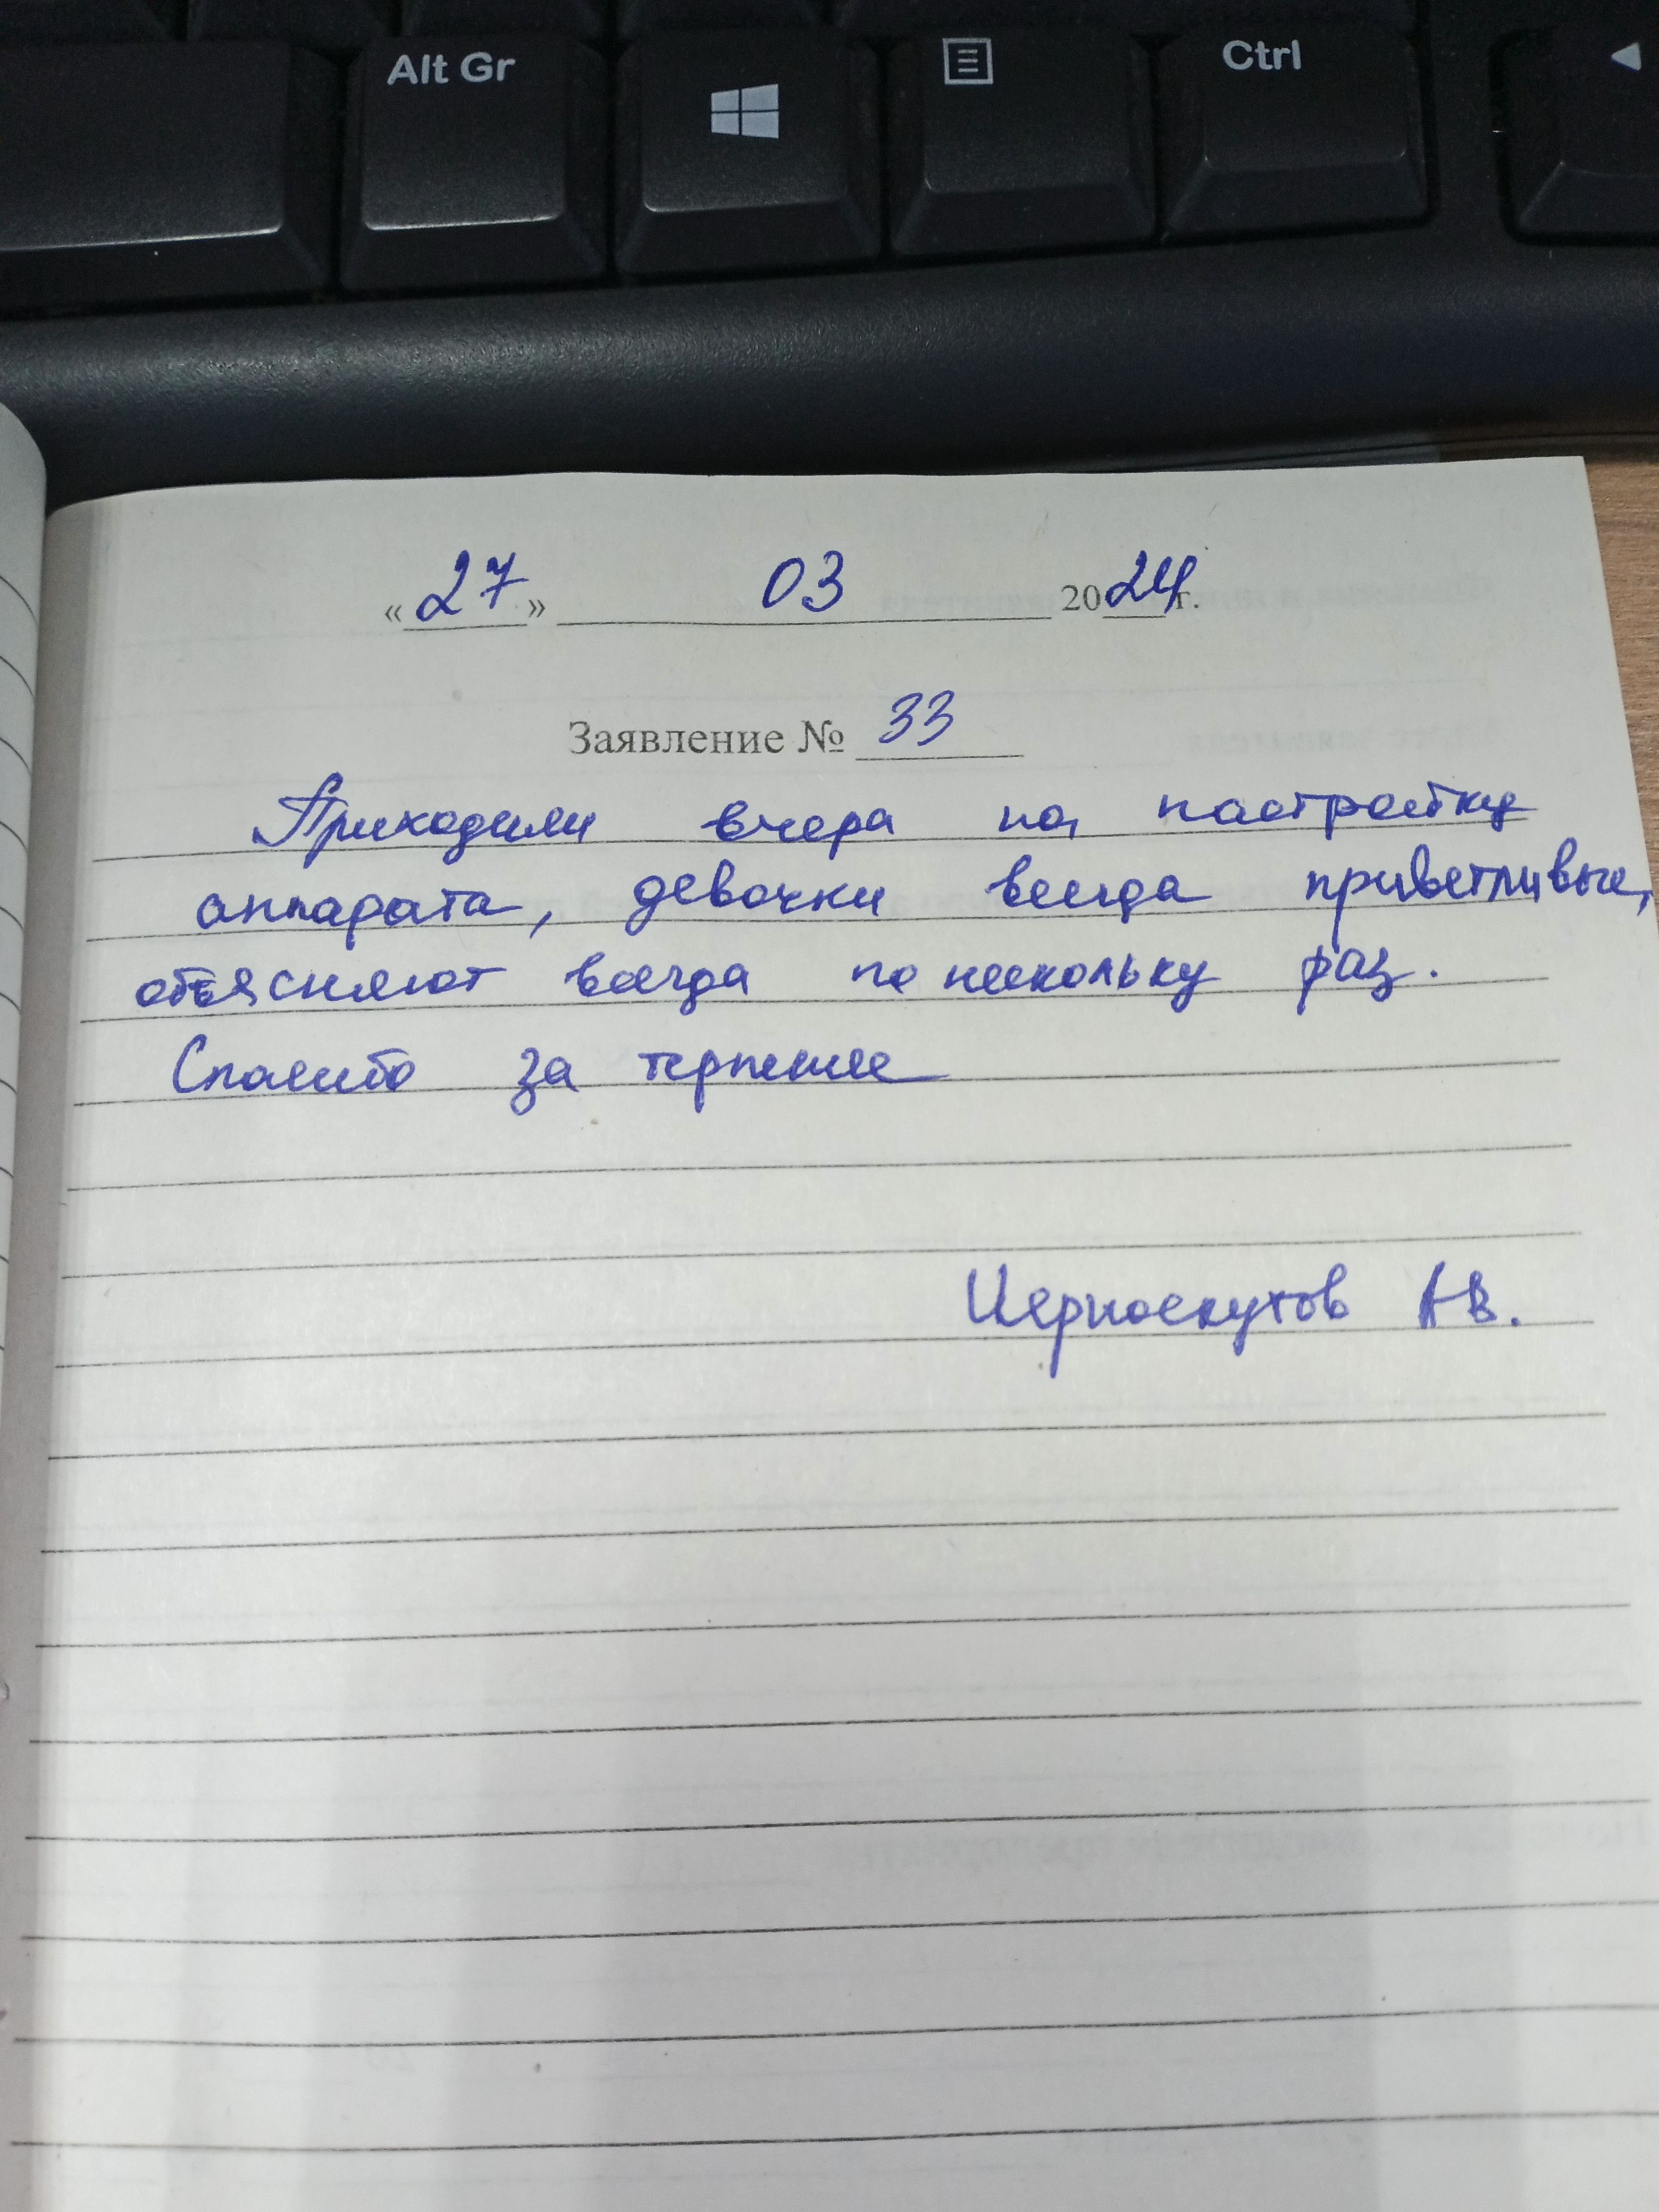 Alt Gr
Ctrl
« 27 » 03 2024 г.
Заявление № 33
Приходили вчера на настройку
аппарата, девочки всегда приветливые,
объясняют всегда по нескольку раз.
Спасибо за терпение
Черноскутов АВ.